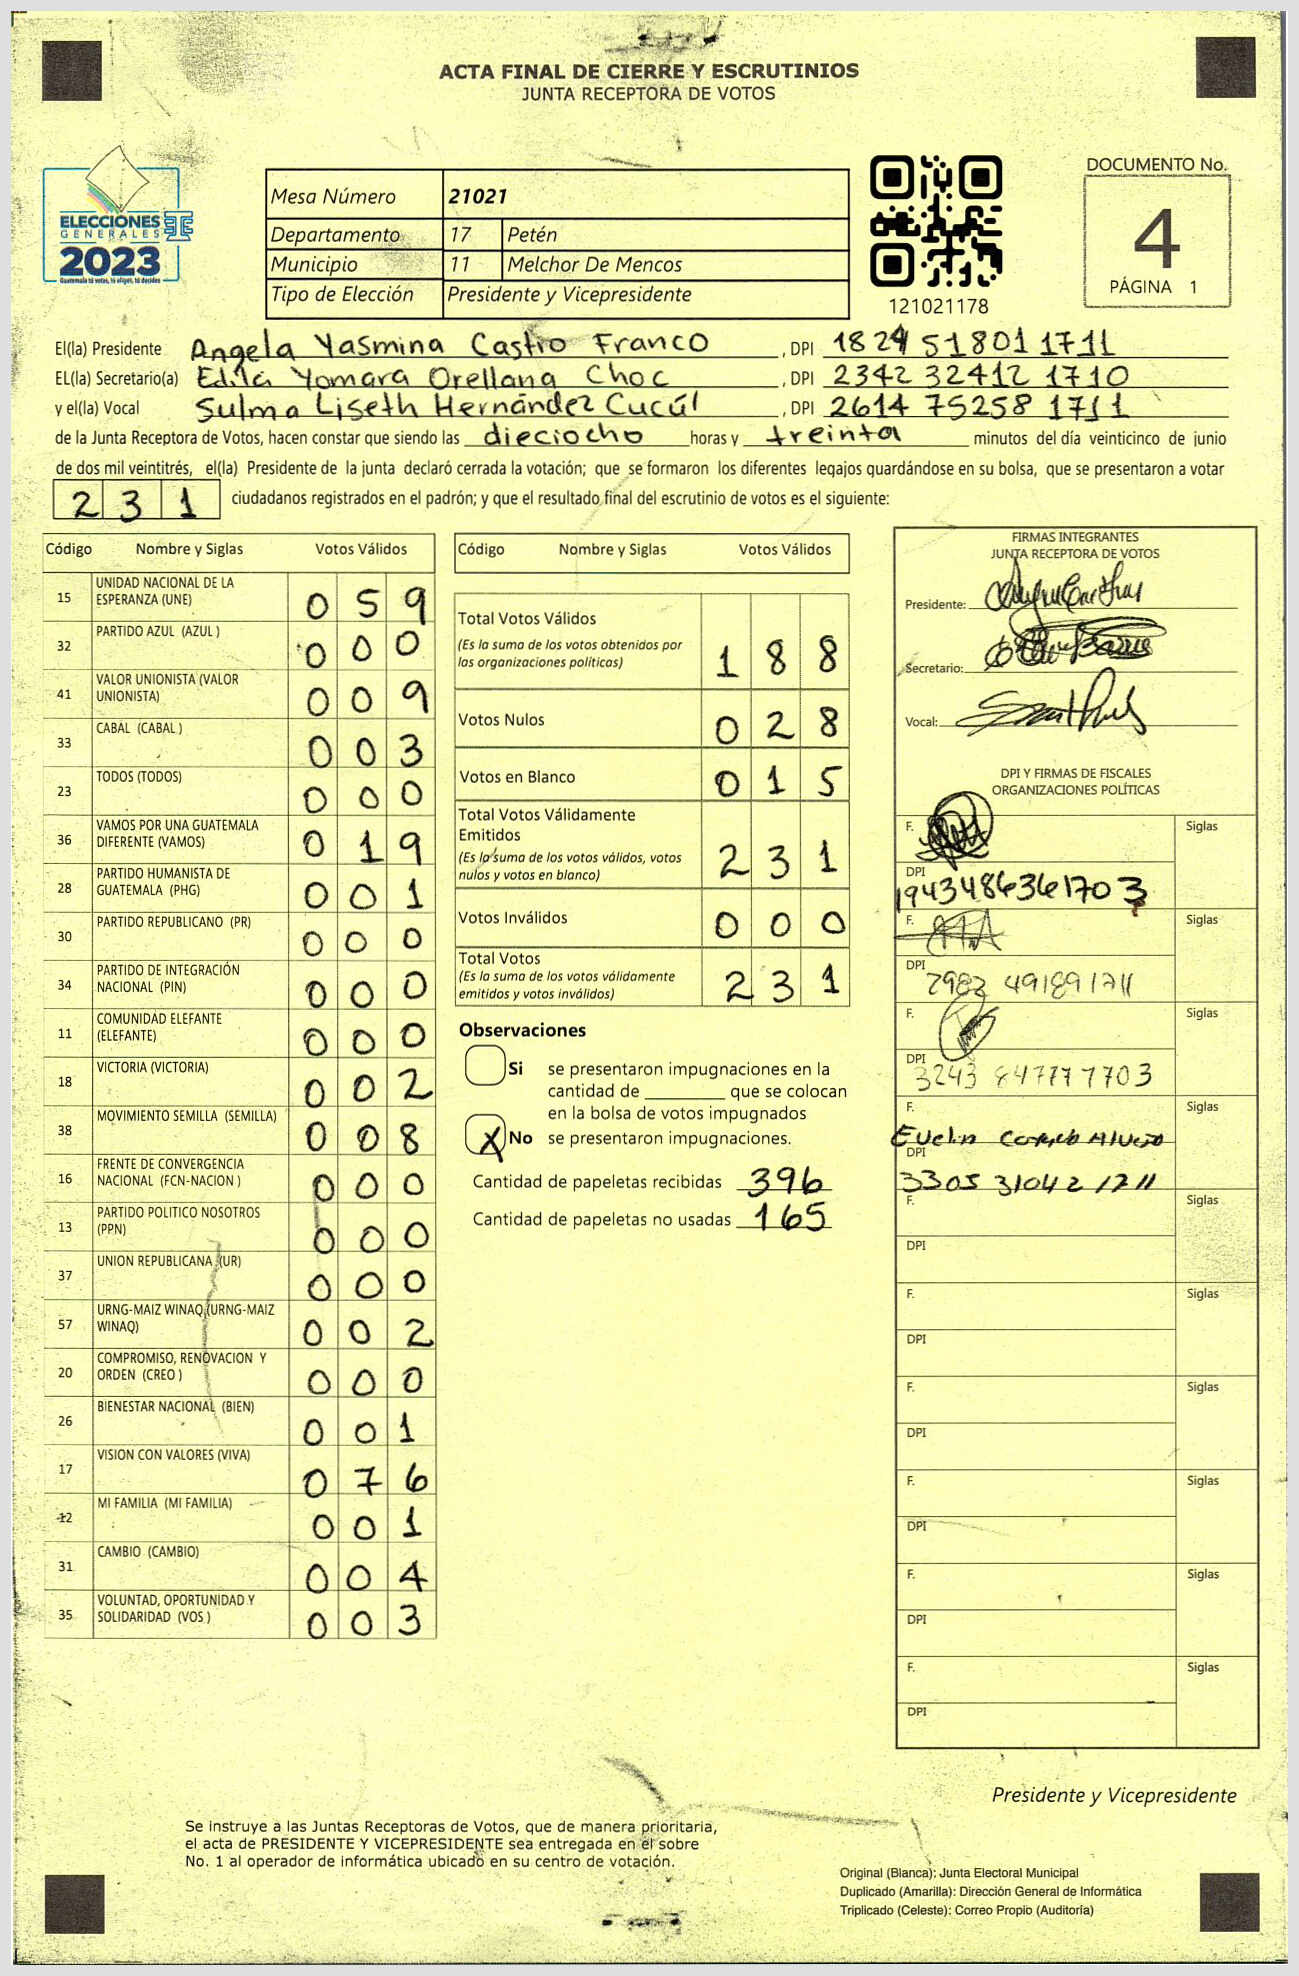 ACTA FINAL DE CIERRE Y ESCRUTINIOS
JUNTA RECEPTORA DE VOTOS
ELECCIONES
GENERALES
2023
Guatemala tú votas, tú eliges, tú decides
Mesa Número 21021
Departamento 17 Petén
Municipio 11 Melchor De Mencos
Tipo de Elección Presidente y Vicepresidente
121021178
DOCUMENTO No.
4
PÁGINA 1
El(la) Presidente Angela Yasmina Castro Franco , DPI 1824 51801 1711
EL(la) Secretario(a) Edita Yomara Orellana Choc , DPI 2342 32412 1710
y el(la) Vocal Sulma Liseth Hernández Cucúl , DPI 2614 75258 1711
de la Junta Receptora de Votos, hacen constar que siendo las dieciocho horas y treinta minutos del día veinticinco de junio
de dos mil veintitrés, el(la) Presidente de la junta declaró cerrada la votación; que se formaron los diferentes legajos guardándose en su bolsa, que se presentaron a votar
231 ciudadanos registrados en el padrón; y que el resultado final del escrutinio de votos es el siguiente:
Código Nombre y Siglas Votos Válidos
15 UNIDAD NACIONAL DE LA ESPERANZA (UNE) 0 5 9
32 PARTIDO AZUL (AZUL ) 0 0 0
41 VALOR UNIONISTA (VALOR UNIONISTA) 0 0 9
33 CABAL (CABAL ) 0 0 3
23 TODOS (TODOS) 0 0 0
36 VAMOS POR UNA GUATEMALA DIFERENTE (VAMOS) 0 1 9
28 PARTIDO HUMANISTA DE GUATEMALA (PHG) 0 0 1
30 PARTIDO REPUBLICANO (PR) 0 0 0
34 PARTIDO DE INTEGRACIÓN NACIONAL (PIN) 0 0 0
11 COMUNIDAD ELEFANTE (ELEFANTE) 0 0 0
18 VICTORIA (VICTORIA) 0 0 2
38 MOVIMIENTO SEMILLA (SEMILLA) 0 0 8
16 FRENTE DE CONVERGENCIA NACIONAL (FCN-NACION ) 0 0 0
13 PARTIDO POLITICO NOSOTROS (PPN) 0 0 0
37 UNION REPUBLICANA (UR) 0 0 0
57 URNG-MAIZ WINAQ (URNG-MAIZ WINAQ) 0 0 2
20 COMPROMISO, RENOVACION Y ORDEN (CREO ) 0 0 0
26 BIENESTAR NACIONAL (BIEN) 0 0 1
17 VISION CON VALORES (VIVA) 0 7 6
12 MI FAMILIA (MI FAMILIA) 0 0 1
31 CAMBIO (CAMBIO) 0 0 4
35 VOLUNTAD, OPORTUNIDAD Y SOLIDARIDAD (VOS ) 0 0 3
Código Nombre y Siglas Votos Válidos
Total Votos Válidos 1 8 8
(Es la suma de los votos obtenidos por
las organizaciones políticas)
Votos Nulos 0 2 8
Votos en Blanco 0 1 5
Total Votos Válidamente
Emitidos 2 3 1
(Es la suma de los votos válidos, votos
nulos y votos en blanco)
Votos Inválidos 0 0 0
Total Votos 2 3 1
(Es la suma de los votos válidamente
emitidos y votos inválidos)
Observaciones
Si se presentaron impugnaciones en la
cantidad de ________ que se colocan
en la bolsa de votos impugnados
X No se presentaron impugnaciones.
Cantidad de papeletas recibidas 396
Cantidad de papeletas no usadas 165
FIRMAS INTEGRANTES
JUNTA RECEPTORA DE VOTOS
Presidente:
Secretario:
Vocal:
DPI Y FIRMAS DE FISCALES
ORGANIZACIONES POLÍTICAS
F. Siglas
DPI 1943486361703
F. Siglas
DPI 2982 491891711
F. Siglas
DPI 3243 847777703
F. Evelin Siglas
DPI 3305 31042 1711
F. Siglas
DPI
F. Siglas
DPI
F. Siglas
DPI
F. Siglas
DPI
F. Siglas
DPI
F. Siglas
DPI
Presidente y Vicepresidente
Se instruye a las Juntas Receptoras de Votos, que de manera prioritaria,
el acta de PRESIDENTE Y VICEPRESIDENTE sea entregada en el sobre
No. 1 al operador de informática ubicado en su centro de votación.
Original (Blanca): Junta Electoral Municipal
Duplicado (Amarilla): Dirección General de Informática
Triplicado (Celeste): Correo Propio (Auditoría)